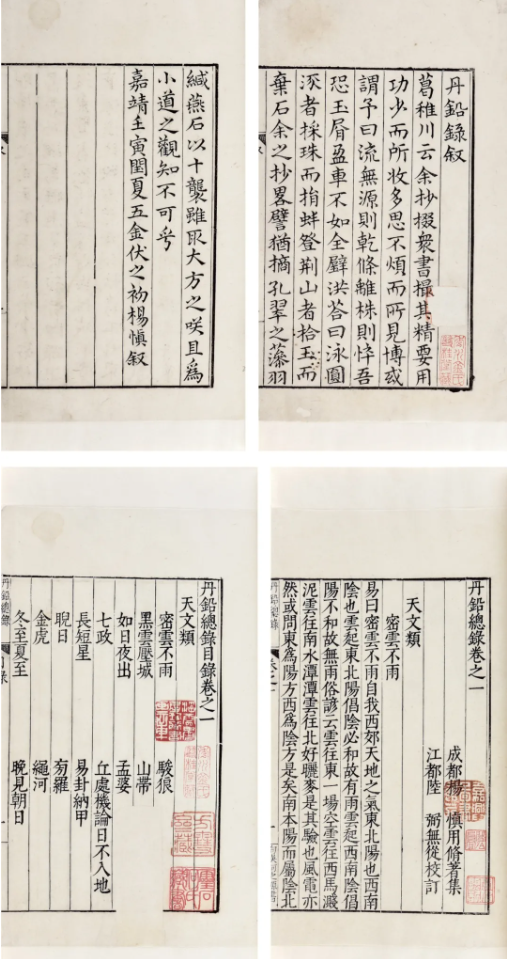 丹鉛錄叙
葛稚川云余抄掇衆書撮其精要用
功少而所收多思不煩而所見博或
謂予曰流無源則乾條離株則悴吾
恐玉屑盈車不如全璧洪荅曰泳圓
流者採珠而捐蚌登荆山者拾玉而
棄石余之抄畧譬猶摘孔翠之藻羽
緘燕石以十襲雖取大方之咲且為
小道之觀知不可乎
嘉靖壬寅閏夏五金伏之初楊慎叙
丹鉛總錄卷之一
成都楊 慎用修著集
江都陸 弼無從校訂
天文類
密雲不雨
易曰密雲不雨自我西郊天地之氣東北陽也西南
陰也雲起東北陽倡陰必和故有雨雲起西南陰倡
陽不和故無雨俗諺云雲往東一場空雲往西馬濺
泥雲往南水潭潭雲往北好曬麥是其驗也風電亦
然或問東為陽方西為陰方是矣南本陽而屬陰北
丹鉛總錄
丹鉛總錄目錄卷之一
天文類
密雲不雨 駿狼
黑雲壓城 山帶
如日夜出 孟婆
七政 丘處機論日不入地
長短星 易卦納甲
晲日 芶羅
金虎 繩河
冬至夏至 晚見朝日
丹鉛總錄